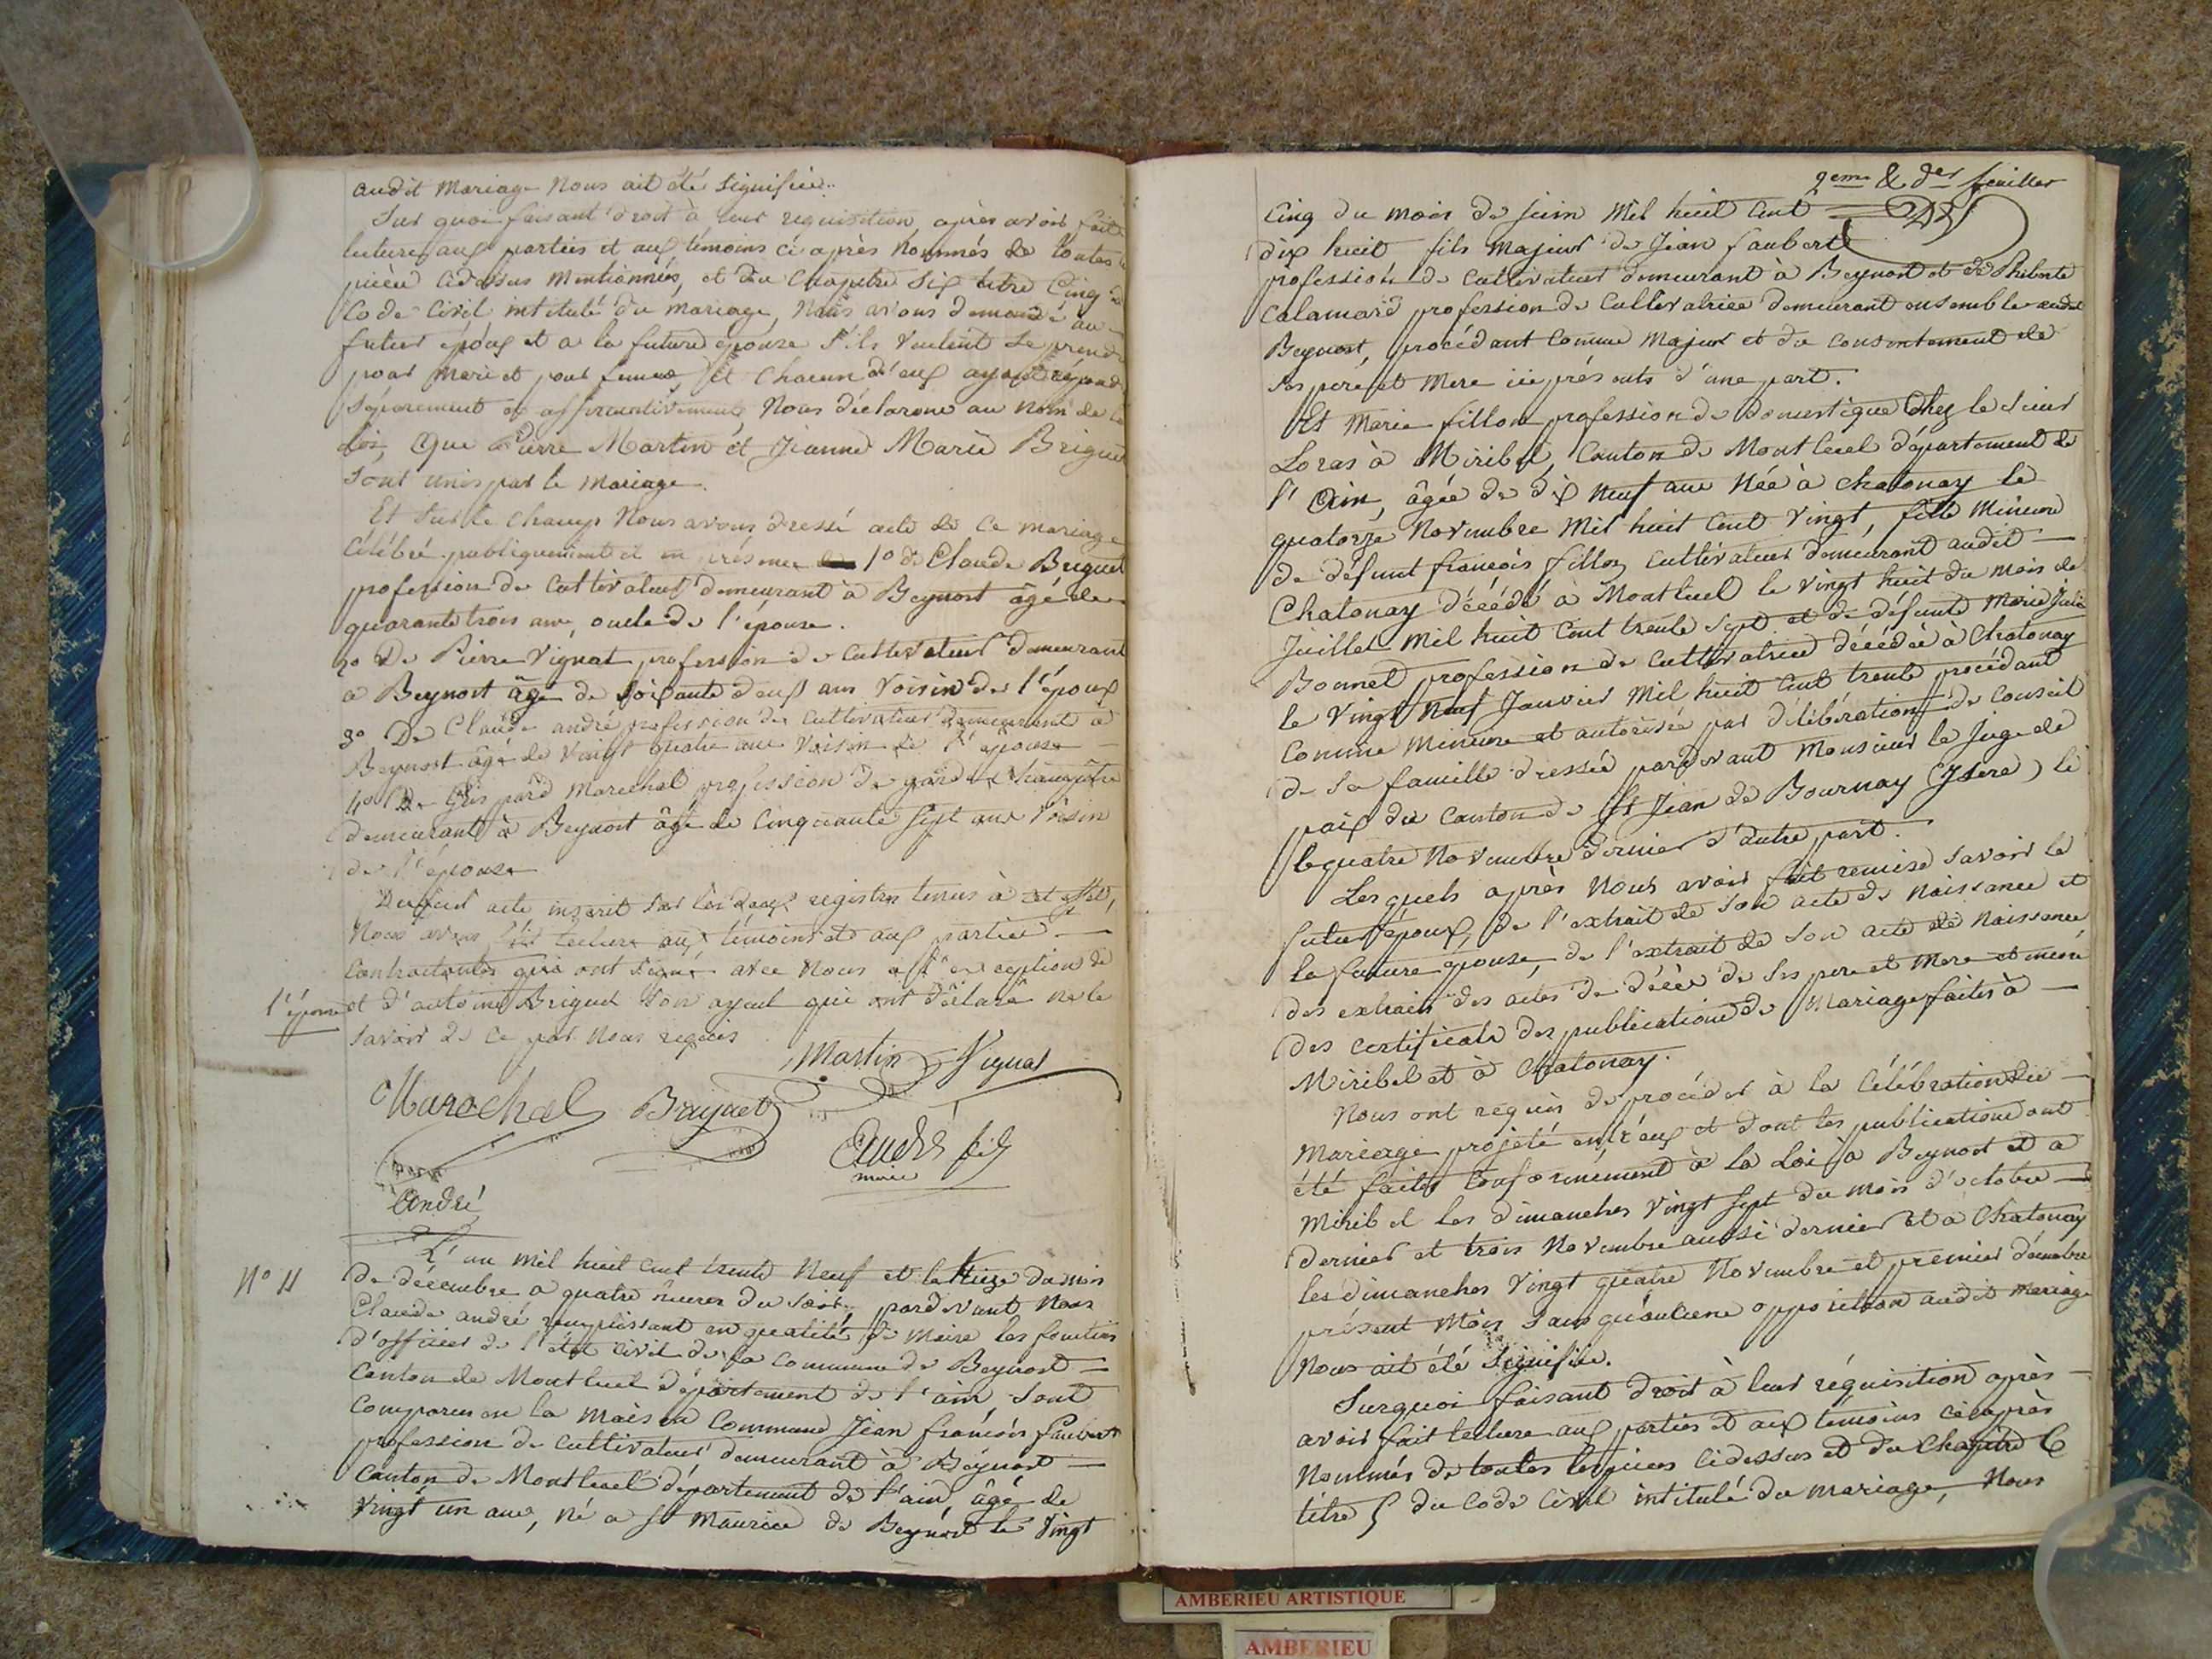 audit mariage nous ait été signifiée.
Sur quoi faisant droit à leur requisition après avoir fait
lecture aux parties et aux témoins ci après nommés de toutes
pièces cidessus mentionnées, et du chapitre six titre Cinq
Code Civil intitulé du mariage, Nous avons demandé au
futur époux et a la future épouse s'ils veulent se prendre
pour mari et pour femme, et chacun d'eux ayant répondu
séparement et affirmativement, Nous déclarons au nom de la
loi, que Pierre Martin et Jeanne Marie Briguet
sont unis par le mariage.
Et sur le champ Nous avons dressé acte de ce mariage
célébré publiquement et en présence 1° de Claude Briguet
profession de cultivateur demeurant à Beynost âgé de
quarante trois ans, oncle de l'épouse.
2° De Pierre Vignat profession de cultivateur demeurant
a Beynost âgé de soixante deux ans voisin de l'époux
3° De Claude andré profession de cultivateur demeurant à
Beynost âgé de vingt quatre ans voisin de l'épouse
4° De Gaspard Marechal profession de garde champêtre
demeurant à Beynost âgé de cinquante sept ans voisin
de l'épouse
Duquel acte inscrit sur les deux registres tenus à cet effet,
Nous avons fait lecture aux témoins et aux parties
contractantes qui ont signé avec nous a l'exception de
l'épouse et d'antoine Briguet son ayeul qui ont déclaré ne le
savoir de ce par nous requis
Martin Vignat
Marechal Briguet
André fils
maire
André
N° 11
L'an mil huit cent trente neuf et le treize du mois
de décembre a quatre heures du soir, pardevant nous
Claude andré remplissant en qualité de Maire les fonctions
d'officier de l'état civil de la commune de Beynost
canton de Montluel département de l'ain, sont
comparus en la maison commune Jean françois Faubert
profession de cultivateur demeurant à Beynost
canton de Montluel département de l'ain, âgé de
vingt un ans, né a St Maurice de Beynost le vingt
2eme & der feuillet
cinq du mois de juin mil huit cent
dix huit fils majeur de Jean faubert
profession de cultivateur demeurant à Beynost et de Philiberte
Calamard profession de cultivatrice demeurant ensemble audit
Beynost, procédant comme majeur et du consentement de
ses pere et mere ici présents d'une part.
Et Marie fillon profession de domestique chez le sieur
Loras à Miribel, canton de Montluel département de
l'Ain, âgée de dix neuf ans née à chatonay le
quatorze Novembre mil huit cent vingt, fille mineure
de défunt françois fillon cultivateur demeurant audit
Chatonay décédé à Montluel le vingt huit du mois de
Juillet mil huit cent trente sept et de défunte Marie Julie
Bonnet profession de cultivatrice décédée à Chatonay
le vingt neuf Janvier mil huit cent trente procédant
comme mineure et autorisée par délibération de conseil
de sa famille dressée pardevant Monsieur le Juge de
paix du canton de St Jean de Bournay (Isere) le
le quatre Novembre dernier d'autre part.
Lesquels après Nous avoir fait remise savoir le
futur époux, de l'extrait de son acte de naissance et
la future épouse, de l'extrait de son acte de naissance
des extraits des actes de décès de ses pere et mere et
des certificats des publications de Mariage faites à
Miribel et à Chatonay.
Nous ont requis de procéder à la célébration du
mariage projeté entr'eux et dont les publications ont
été faites conformément à la loi à Beynost et a
Miribel les dimanches vingt sept du mois d'octobre
dernier et trois Novembre aussi dernier et a Chatonay
les dimanches vingt quatre Novembre et premier décembre
présent mois sans qu'aucune opposition audit mariage
nous ait été signifiée.
Surquoi faisant droit à leur réquisition après
avoir fait lecture aux parties et aux témoins ci après
nommés de toutes les pièces cidessus et du chapitre 6
titre 5 du code civil intitulé du mariage, Nous
AMBERIEU ARTISTIQUE
AMBERIEU